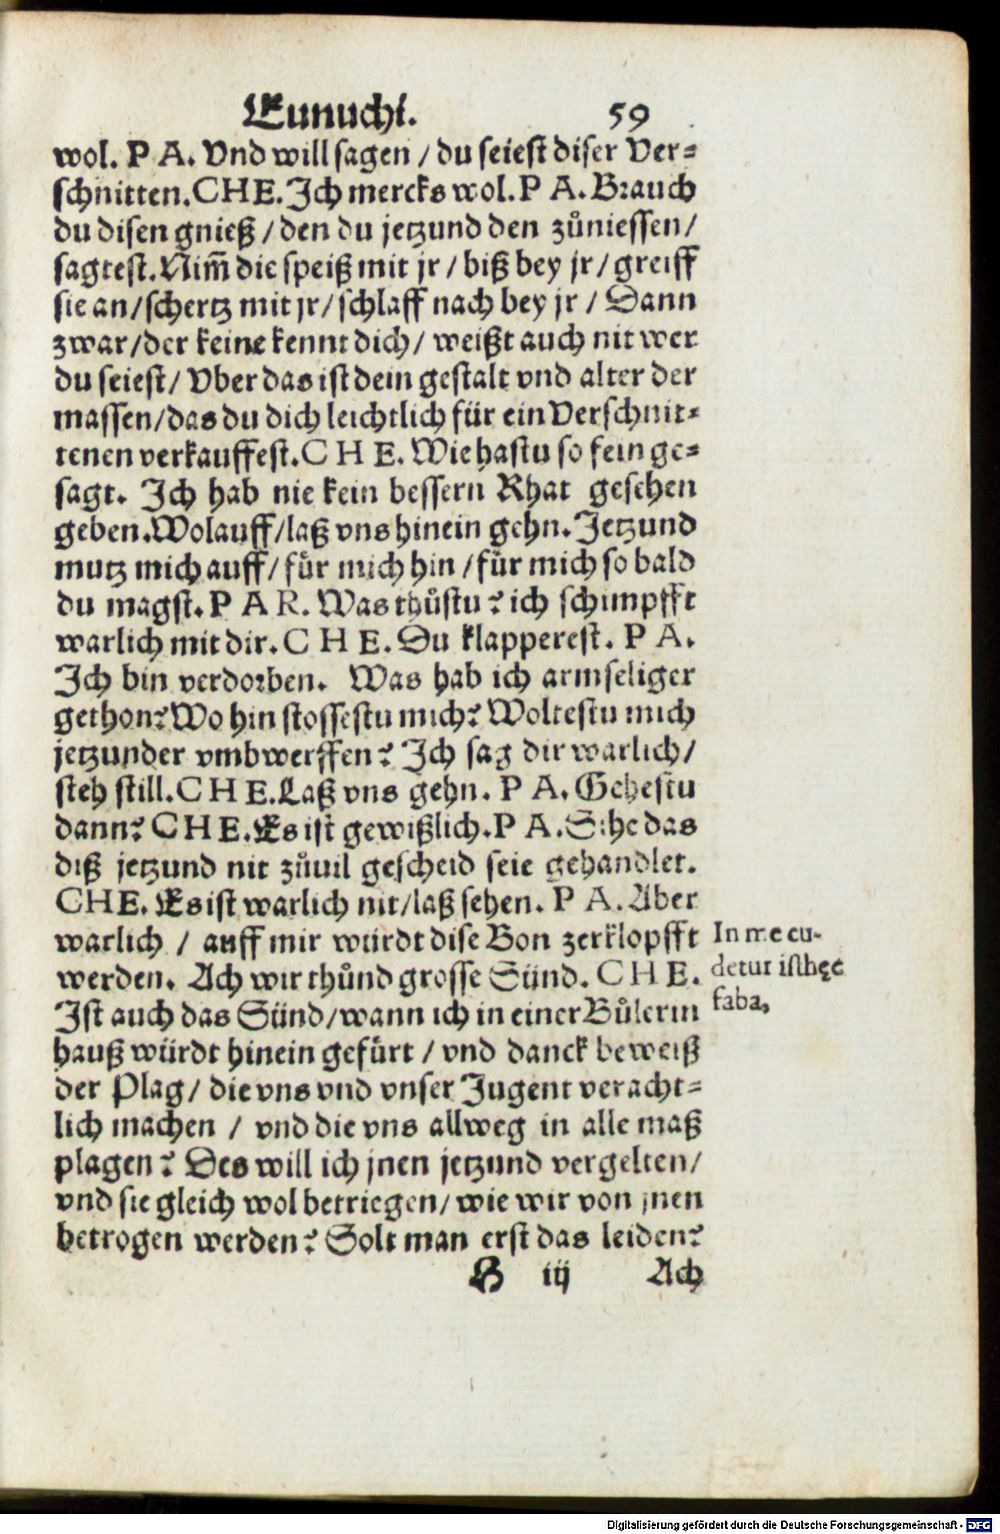 Eunuchi. 59
wol. P A. Vnd will sagen / du seiest diser Ver-
schnitten. CHE. Ich mercks wol. P A. Brauch
du disen gnieß / den du jetzund den zůniessen /
sagtest. Nim̃ die speiß mit jr / biß bey jr / greiff
sie an / schertz mit jr / schlaff nach bey jr / Dann
zwar / der keine kennt dich / weißt auch nit wer
du seiest / Vber das ist dein gestalt vnd alter der
massen / das du dich leichtlich für ein Verschnit-
tenen verkauffest. C H E. Wie hastu so fein ge-
sagt. Ich hab nie kein bessern Rhat gesehen
geben. Wolauff / laß vns hinein gehn. Jetzund
mutz mich auff / für mich hin / für mich so bald
du magst. P A R. Was thůstu? ich schimpfft
warlich mit dir. C H E. Du klapperest. P A.
Ich bin verdorben. Was hab ich armseliger
gethon? Wo hin stossestu mich? Woltestu mich
jetzunder vmbwerffen? Ich sag dir warlich /
steh still. C H E. Laß vns gehn. P A. Gehestu
dann? C H E. Es ist gewißlich. P A. Sihe das
diß jetzund nit zůuil gescheid seie gehandlet.
CHE. Es ist warlich nit / laß sehen. P A. Aber
warlich / auff mir würdt dise Bon zerklopfft
werden. Ach wir thůnd grosse Sünd. C H E.
Ist auch das Sünd / wann ich in einer Bůlerin
hauß würdt hinein gefürt / vnd danck beweiß
der Plag / die vns vnd vnser Jugent veracht-
lich machen / vnd die vns allweg in alle maß
plagen? Des will ich jnen jetzund vergelten /
vnd sie gleich wol betriegen / wie wir von jnen
betrogen werden? Solt man erst das leiden?
H iij Ach
In me cu-
detur isthęc
faba,
Digitalisierung gefördert durch die Deutsche Forschungsgemeinschaft - DFG